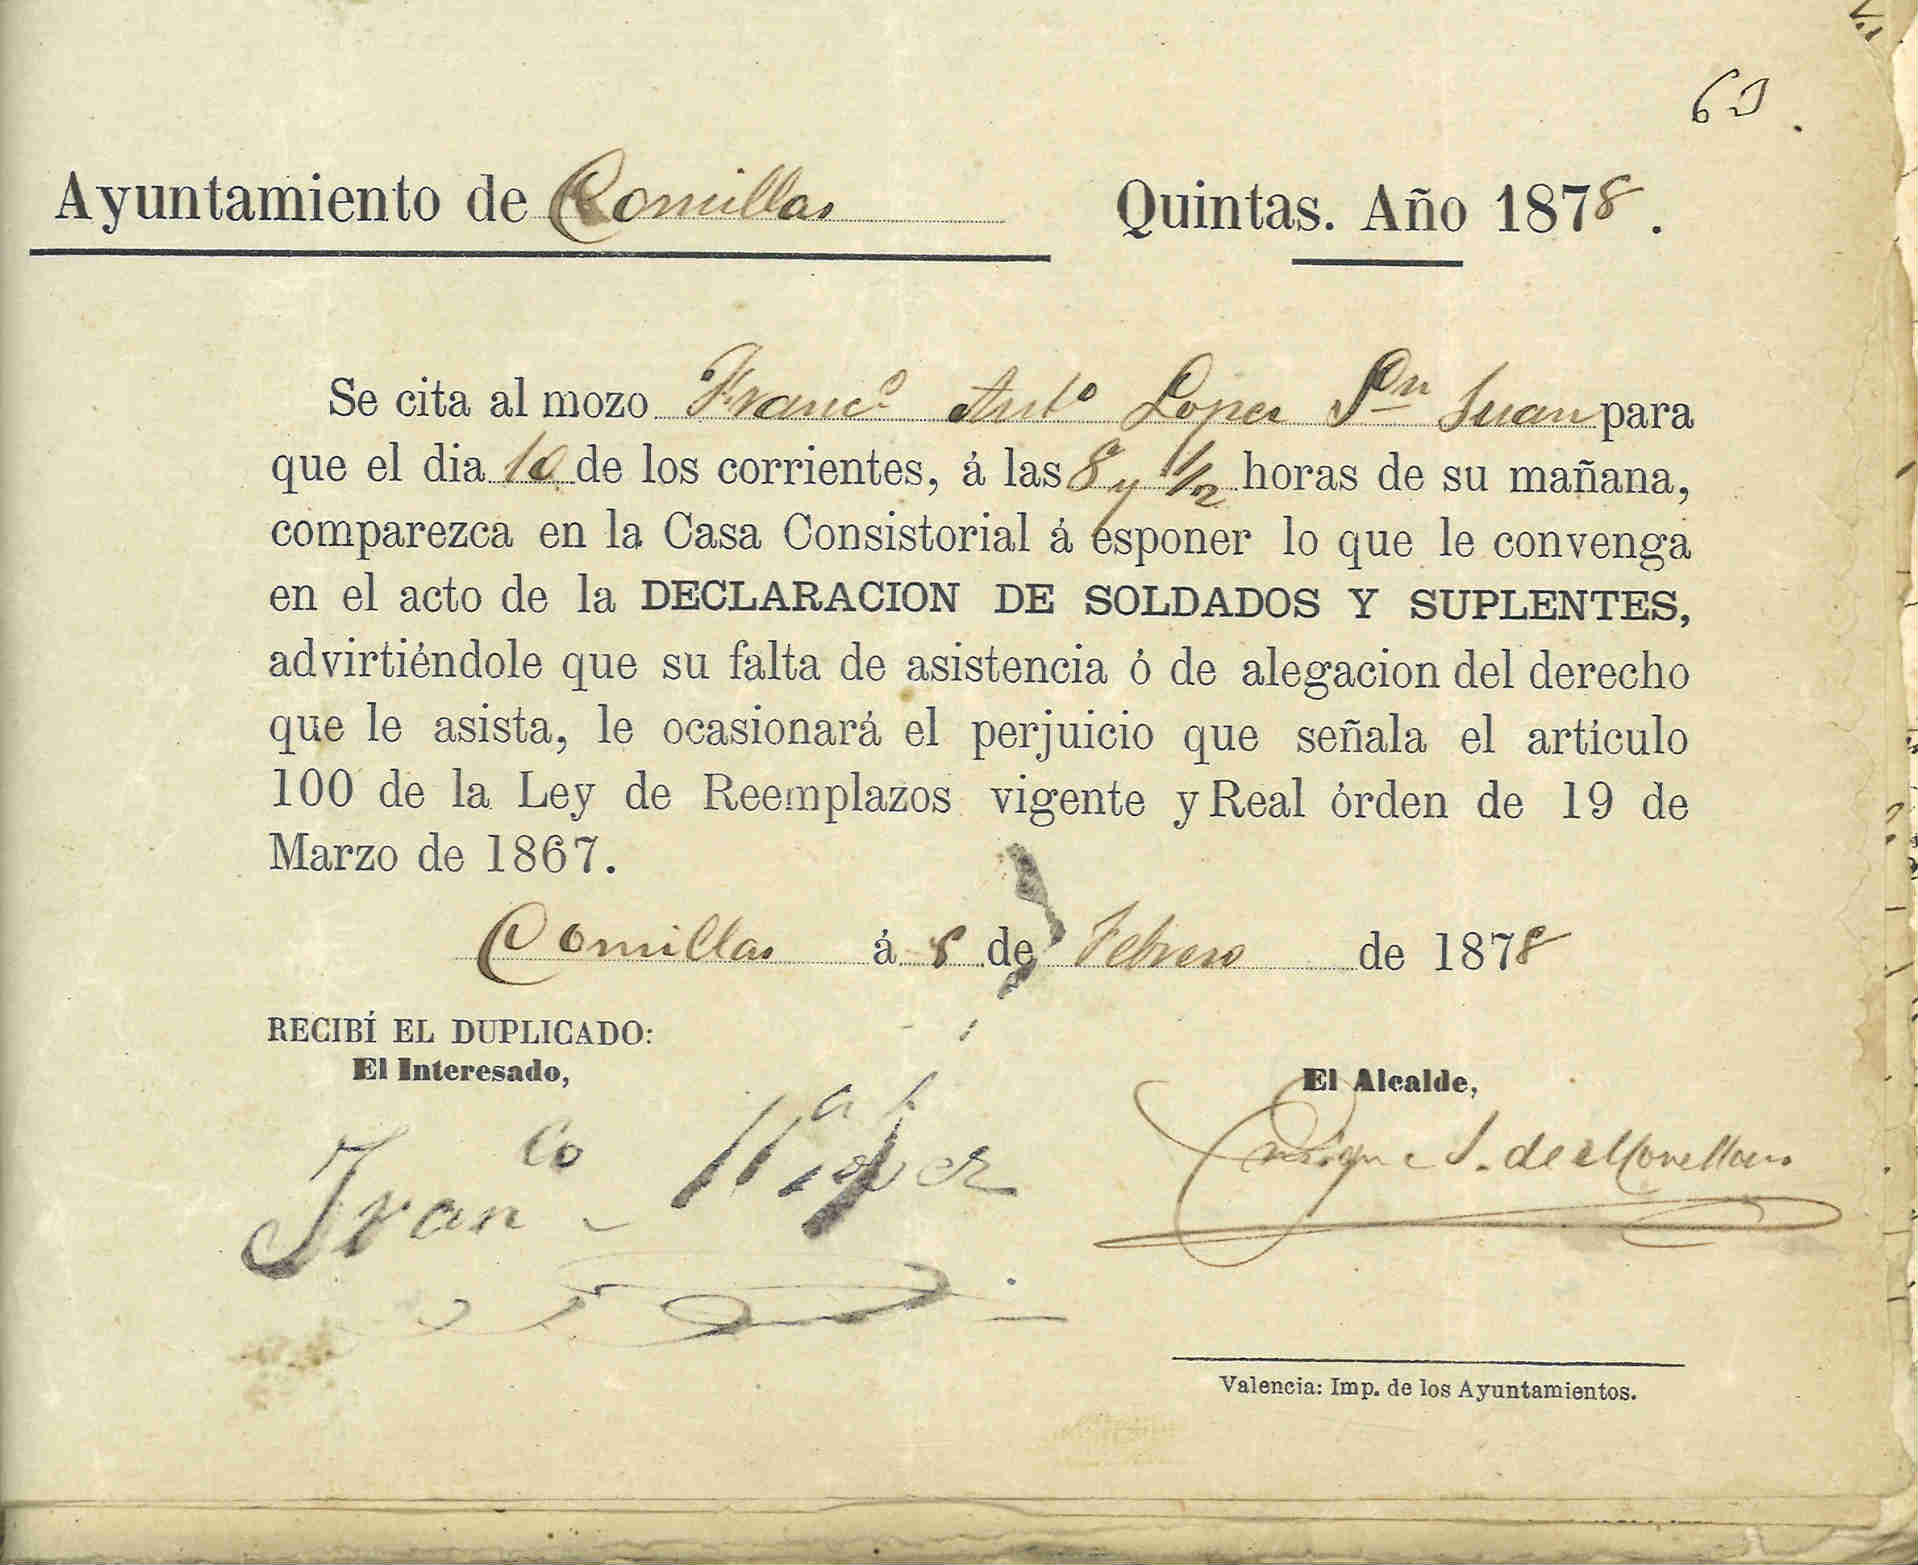 63.
Ayuntamiento de Comillas Quintas. Año 1878.
Se cita al mozo Franc.º Ant.º Lopez Sn Juan para
que el dia 10 de los corrientes, á las 8 y 1/2 horas de su mañana,
comparezca en la Casa Consistorial á esponer lo que le convenga
en el acto de la DECLARACION DE SOLDADOS Y SUPLENTES,
advirtiéndole que su falta de asistencia ó de alegacion del derecho
que le asista, le ocasionará el perjuicio que señala el artículo
100 de la Ley de Reemplazos vigente y Real órden de 19 de
Marzo de 1867.
Comillas á 8 de Febrero de 1878
RECIBÍ EL DUPLICADO:
El Interesado,
El Alcalde,
Franco Lopez
Enrique S. de Movellan
Valencia: Imp. de los Ayuntamientos.